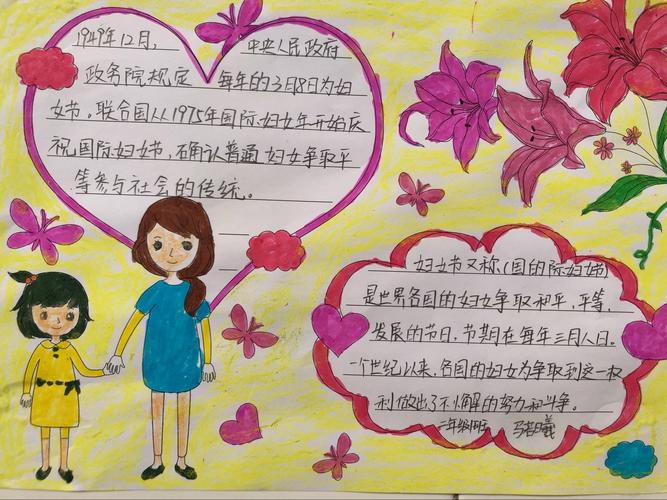 1949年12月, 中央人民政府
政务院规定 每年的3月8日为妇
女节。联合国从1975年国际妇女年开始庆
祝国际妇女节,确认普通妇女争取平
等参与社会的传统。
妇女节又称(国的际妇女节)
是世界各国的妇女争取和平,平等,
发展的节日,节期在每年三月八日。
一个世纪以来,各国的妇女为争取到这一权
利做出了不懈的努力和斗争。